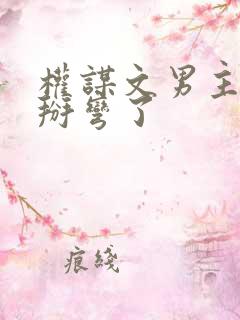 權謀文男主
掰彎了
痕綫